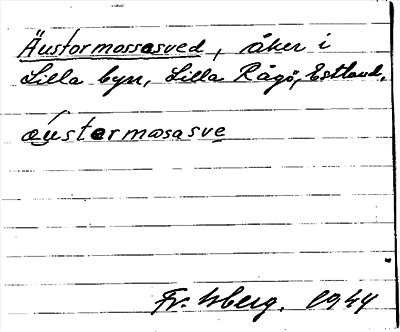 Äustormossasved, åker i
Lilla byn, Lilla Rågö, Estland.
æustormosasve
Fr. Isberg. 1944